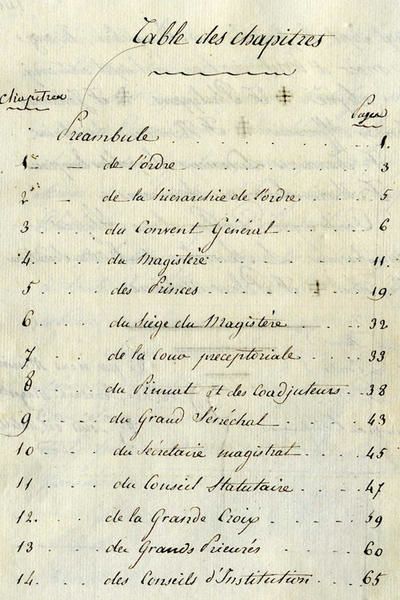 Table des chapitres
Chapitres Pages
Preambule 1.
1er de l'ordre 3
2e de la hierarchie de l'ordre 5
3 du Convent Général 6
4. du Magistère 11.
5 des Princes 19
6 du Siège du Magistère 32
7 de la Cour preceptoriale 33
8 du Primat et des Coadjuteurs 38
9 du Grand Sénéchal 43
10 du Sécretaire magistral 45
11 du Conseil Statutaire 47
12. de la Grande Croix 59
13 des Grands Prieurés 60
14. des Conseils d'Institution 65